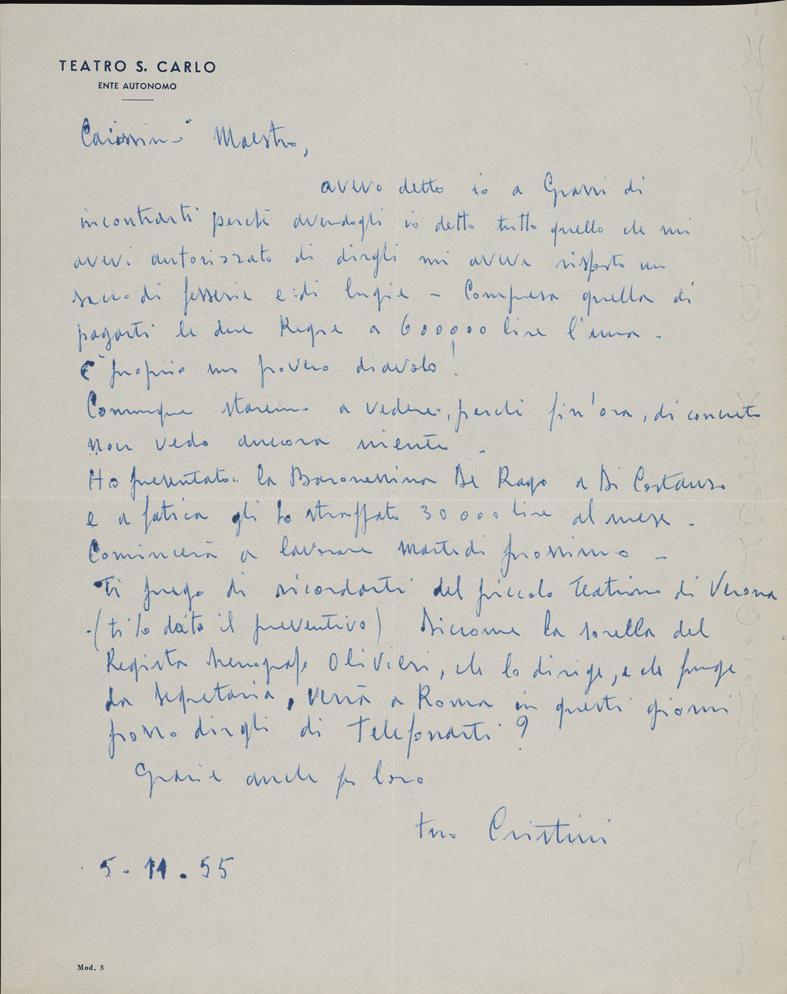 TEATRO S. CARLO
ENTE AUTONOMO
Carissimo Maestro,
avevo detto io a Grassi di
incontrarti perchè avendogli io detto tutto quello che mi
avevi autorizzato di dirgli mi aveva risposto un
sacco di fesserie e di bugie – Compresa quella di
pagarti le due Regie a 600000 lire l'una –
È proprio un povero diavolo!
Comunque staremo a vedere, perchè fin'ora, di concreto
non vedo ancora niente –
Ho presentato la Baronessina De Rago a Di Costanzo
e a fatica gli ho strappato 30000 lire al mese –
Comincerà a lavorare martedì prossimo –
Ti prego di ricordarti del piccolo Teatrino di Verona
(ti ho dato il preventivo) Siccome la sorella del
Regista scenografo Olivieri, che lo dirige, e che funge
da segretaria, verrà a Roma in questi giorni
posso dirgli di Telefonarti?
Grazie anche per loro
tuo Cristini
5 - 11 . 55
Mod. 3